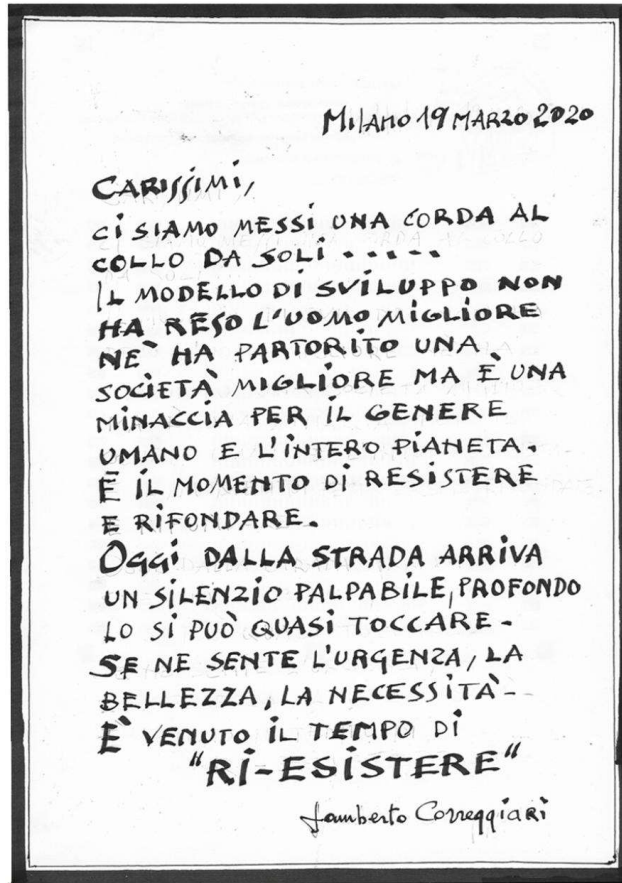 MILANO 19 MARZO 2020
CARISSIMI,
CI SIAMO MESSI UNA CORDA AL
COLLO DA SOLI . . . . .
IL MODELLO DI SVILUPPO NON
HA RESO L'UOMO MIGLIORE
NE` HA PARTORITO UNA
SOCIETÀ MIGLIORE MA È UNA
MINACCIA PER IL GENERE
UMANO E L'INTERO PIANETA.
È IL MOMENTO DI RESISTERE
E RIFONDARE.
OGGI DALLA STRADA ARRIVA
UN SILENZIO PALPABILE, PROFONDO
LO SI PUÒ QUASI TOCCARE -
SE NE SENTE L'URGENZA, LA
BELLEZZA, LA NECESSITÀ -
È VENUTO IL TEMPO DI
"RI-ESISTERE"
Lamberto Correggiari